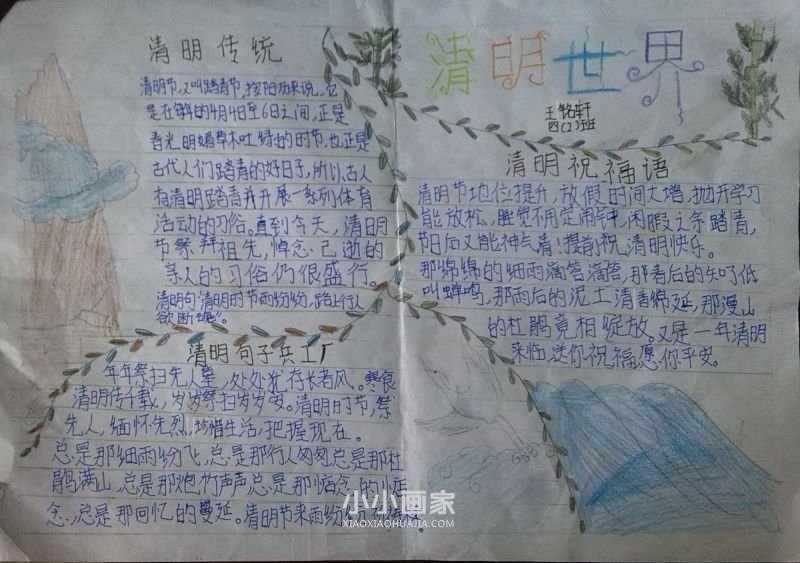 清明世界
王铭轩
四(2)班
清明传统
清明节,又叫踏青节,按阳历来说,它
是在每年的4月4日至6日之间,正是
春光明媚草木吐绿的时节,也正是
古代人们踏青的好日子,所以古人
有清明踏青并开展一系列体育
活动的习俗。直到今天,清明
节祭拜祖先,悼念已逝的
亲人的习俗仍很盛行。
清明句"清明时节雨纷纷,路上行人
欲断魂"。
清明祝福语
清明节地位提升,放假时间大增,抛开学习
能放松,睡觉不用定闹钟,闲暇之余踏青,
节日后又能神气清!提前祝,清明快乐。
那绵绵的细雨滴答滴答,那春后的知了低
叫蝉鸣,那雨后的泥土清香绵延,那漫山
的杜鹃竞相绽放。又是一年清明
来临,送你祝福愿你平安。
清明句子兵工厂
年年祭扫先人墓,处处犹存长者风。寒食
清明传千载,岁岁祭扫岁岁安。清明时节,祭
先人,缅怀先烈,珍惜生活,把握现在。
总是那细雨纷飞,总是那行人匆匆总是那杜
鹃满山,总是那炮竹声声总是那惦念的惦
念,总是那回忆的蔓延。清明节来雨纷纷
小小画家
XIAOXIAOHUAJIA.COM